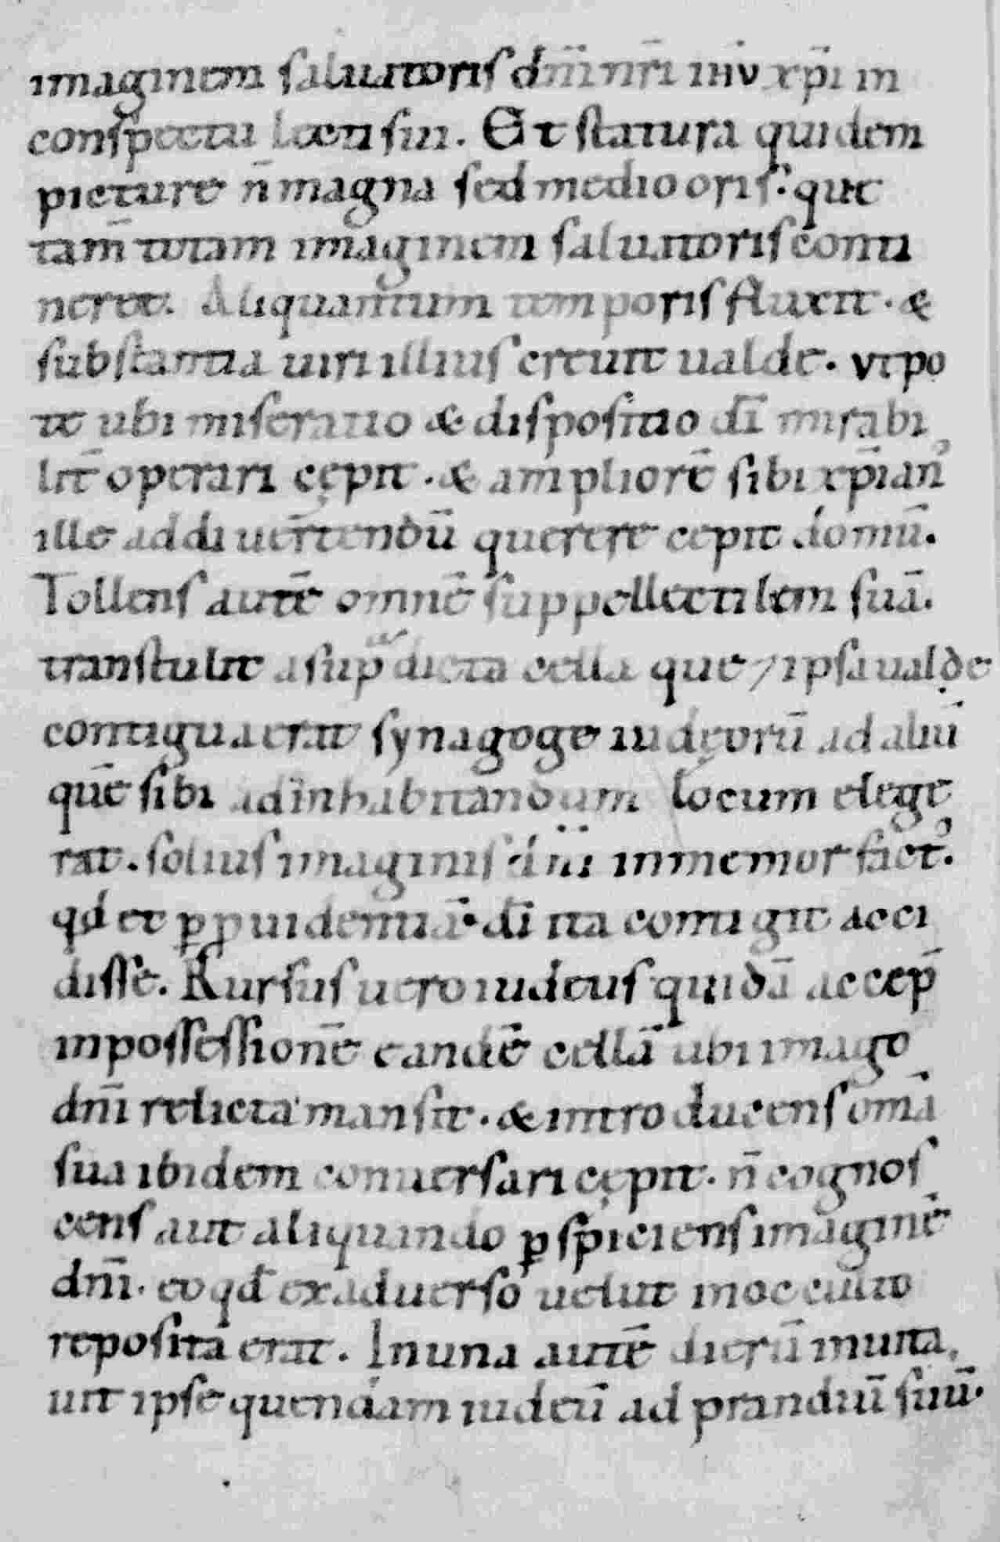 imaginem saluatoris dñi nr̄i ihū xp̄i in
conspectu lecti sui. Et statura quidem
picture n̄ magna sed mediooris. que
tam̄ totam imaginem saluatoris conti
neret. Aliquantum temporis fluxit. &
substantia uiri illius creuit ualde. vtpo
te ubi miseratio & dispositio dī mirabi
lit̄ operari cępit. & ampliorē sibi xp̄ian᾽
ille ad diuertendū querere cepit domū.
Tollens autē omnē suppellectilem suā.
transtulit a sup̄dicta cella que ⁊ ipsa ualde
contigua erat synagoge iudęorū ad aliū
quē sibi ad inhabitandum locum elege
rat. solius imaginis dn̄i inmemor fact᾽.
qd̄ et ꝑ ꝓuidentiā dī ita contigit acci
disse. Rursus uero iudeus quidā accep̄
in possessionē eandē cellā ubi imago
dñi relicta mansit. & introducens om̄ia
sua ibidem conuersari cępit. n̄ cognos
cens aut aliquando ꝑspiciens imaginē
dñi. eo qd̄ ex aduerso uelut in occulto
reposita erat. In una autē dierū inuita,
uit ipse quendam iudeū ad prandiū suū.